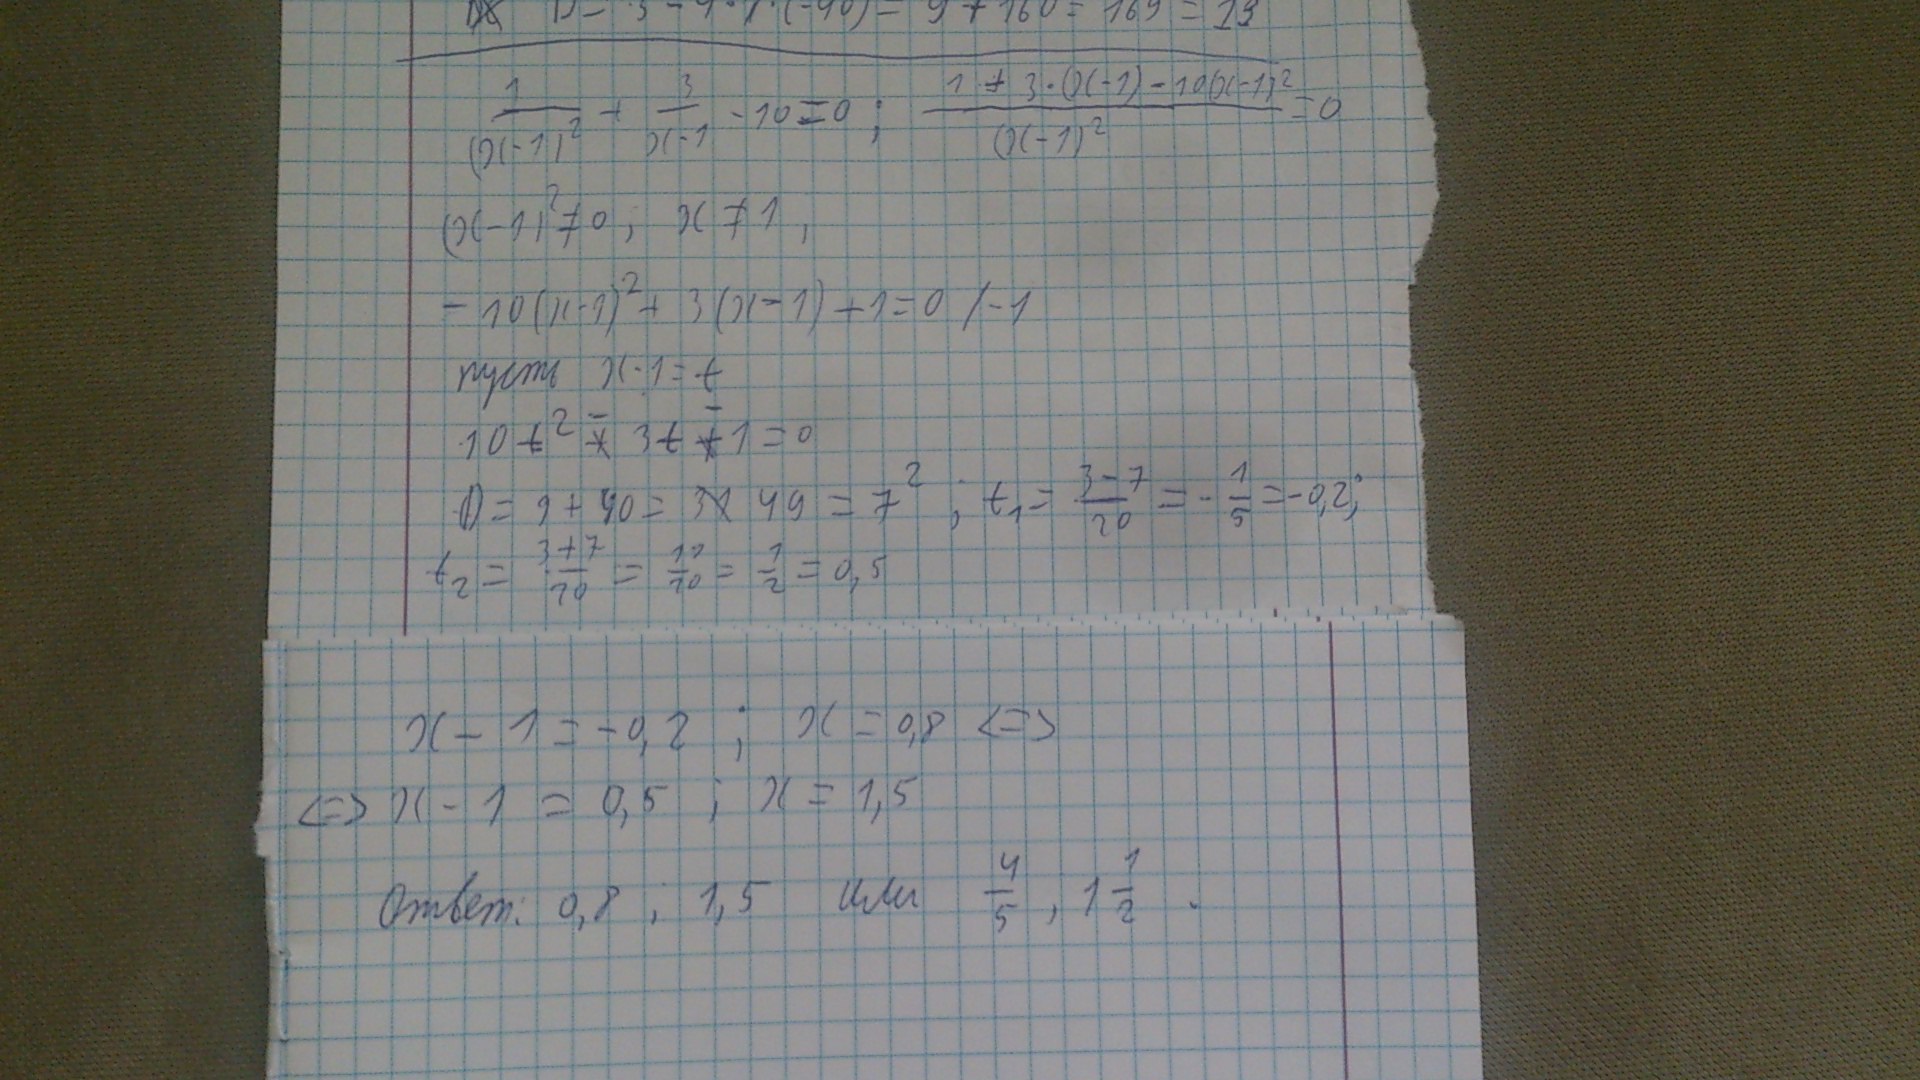 D = 3 - 4 · 1 · (-40) = 9 + 160 = 169 = 13
1/(x-1)² + 3/(x-1) - 10 = 0 ; (1 + 3·(x-1) - 10(x-1)²)/(x-1)² = 0
(x-1)² ≠ 0 ; x ≠ 1 ,
- 10(x-1)² + 3(x-1) + 1 = 0 /-1
пусть x-1 = t
10t² - 3t - 1 = 0
D = 9 + 40 = 49 = 7² ; t₁ = (3-7)/20 = -1/5 = -0,2;
t₂ = (3+7)/20 = 10/20 = 1/2 = 0,5
x - 1 = -0,2 ; x = 0,8 <=>
<=> x - 1 = 0,5 ; x = 1,5
Ответ: 0,8 ; 1,5 или 4/5 , 1 1/2 .